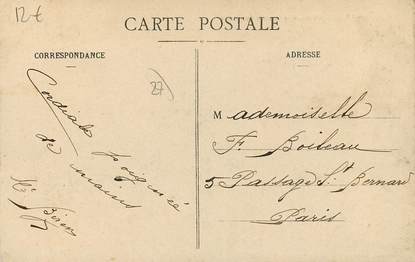 12 €
CARTE POSTALE
CORRESPONDANCE
ADRESSE
27
Cordiale poignée
de mains
Mademoiselle
F. Boileau
5 Passage St. Bernard
Paris